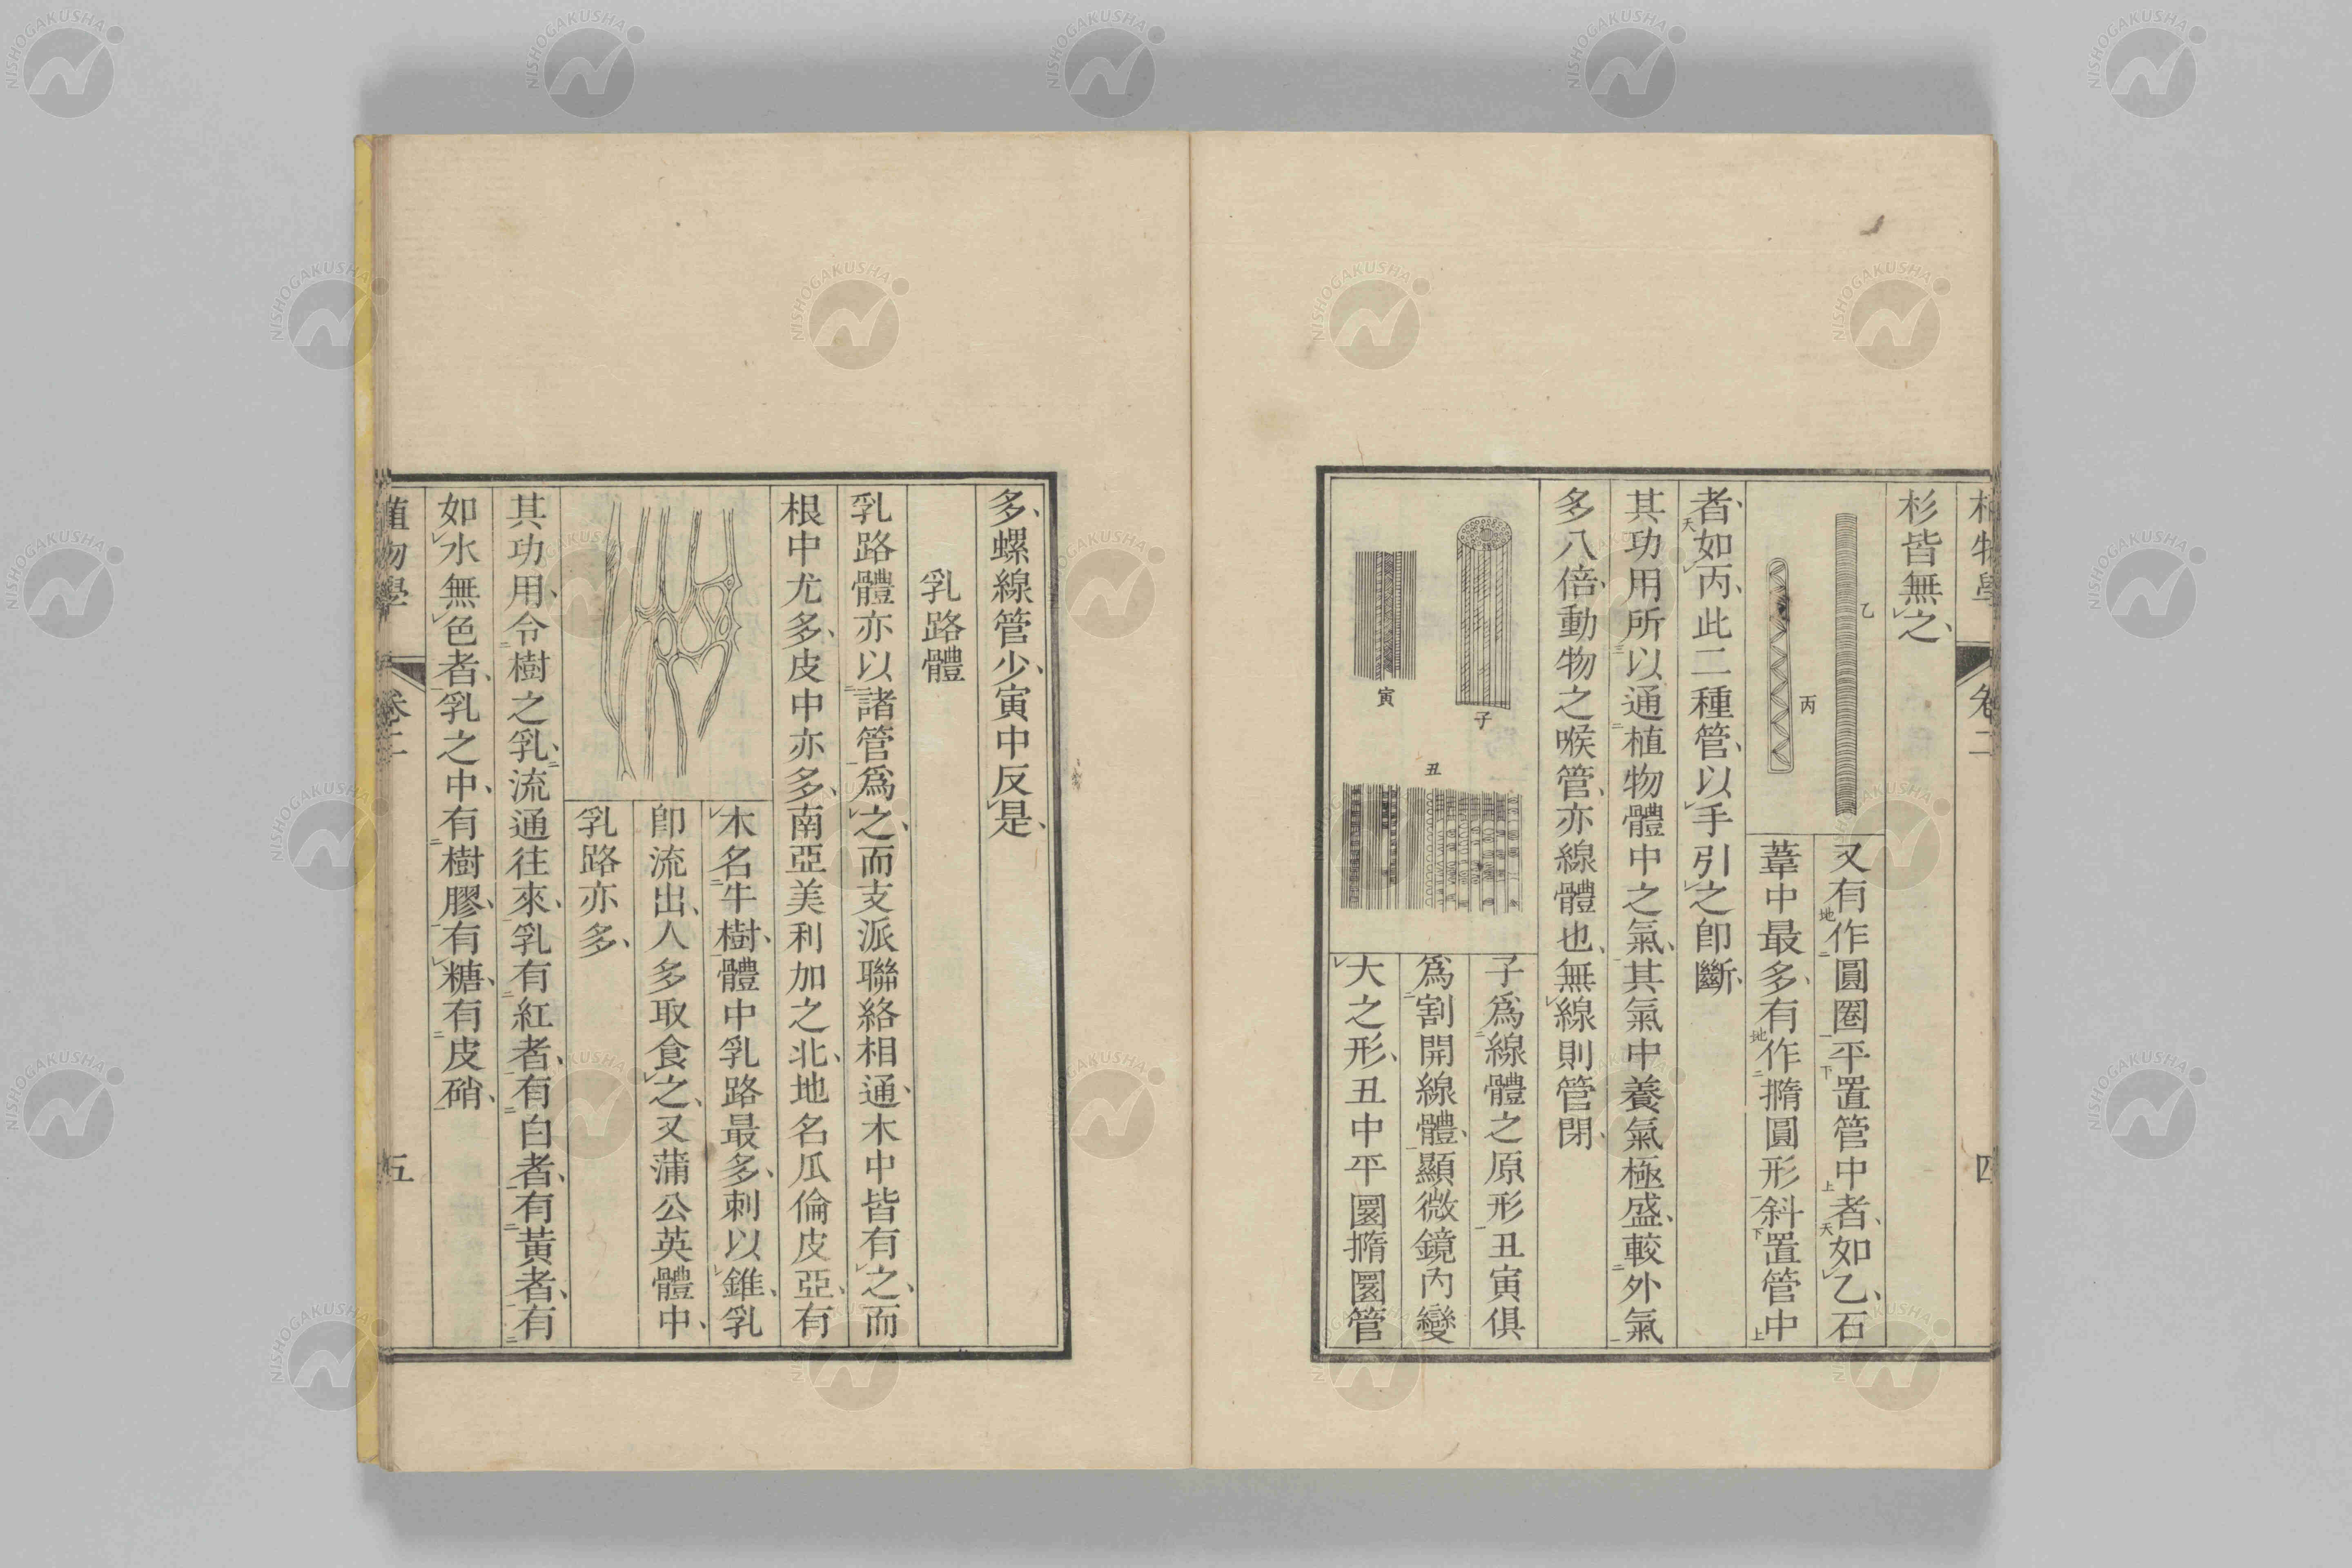 植物學 卷二 四
杉皆無之、
乙
丙
又有作圓圈平置管中者、如乙、石
葦中最多、有作撱圓形斜置管中
者、如丙、此二種管、以手引之卽斷、
其功用所以通植物體中之氣、其氣中養氣極盛、較外氣
多八倍、動物之喉管、亦線體也、無線則管閉、
子
寅
丑
子爲線體之原形、丑寅俱
爲割開線體、顯微鏡內變
大之形、丑中平圜撱圜管
多、螺線管少、寅中反是、
乳路體
乳路體亦以諸管爲之、而支派聯絡相通、木中皆有之、而
根中尤多、皮中亦多、南亞美利加之北、地名瓜倫皮亞、有
木名牛樹、體中乳路最多、刺以錐、乳
卽流出、人多取食之、又蒲公英體中、
乳路亦多、
其功用、令樹之乳、流通往來、乳有紅者、有白者、有黃者、有
如水無色者、乳之中、有樹膠、有糖、有皮硝、
植物學 卷二 五
NISHOGAKUSHA